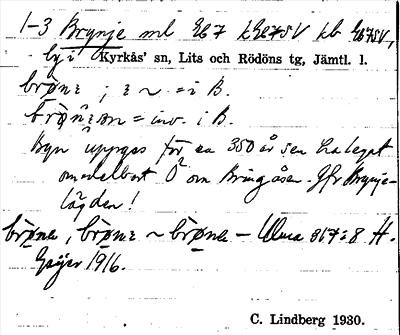 1-3 Brynje ml 867 k 867SV kb 867SV,
by i Kyrkås' sn, Lits och Rödöns tg, Jämtl. l.
brønɛ ; ɛ ~ = i B.
= inv. i B.
Byn uppges för ca 350 år sen ha legat
omedelbart Ö om Bringåsen. Jfr Brynje-
lägden!
brønɛ, brønɛ ~ brønɛ — 867:8 H.
Geijer 1916.
C. Lindberg 1930.